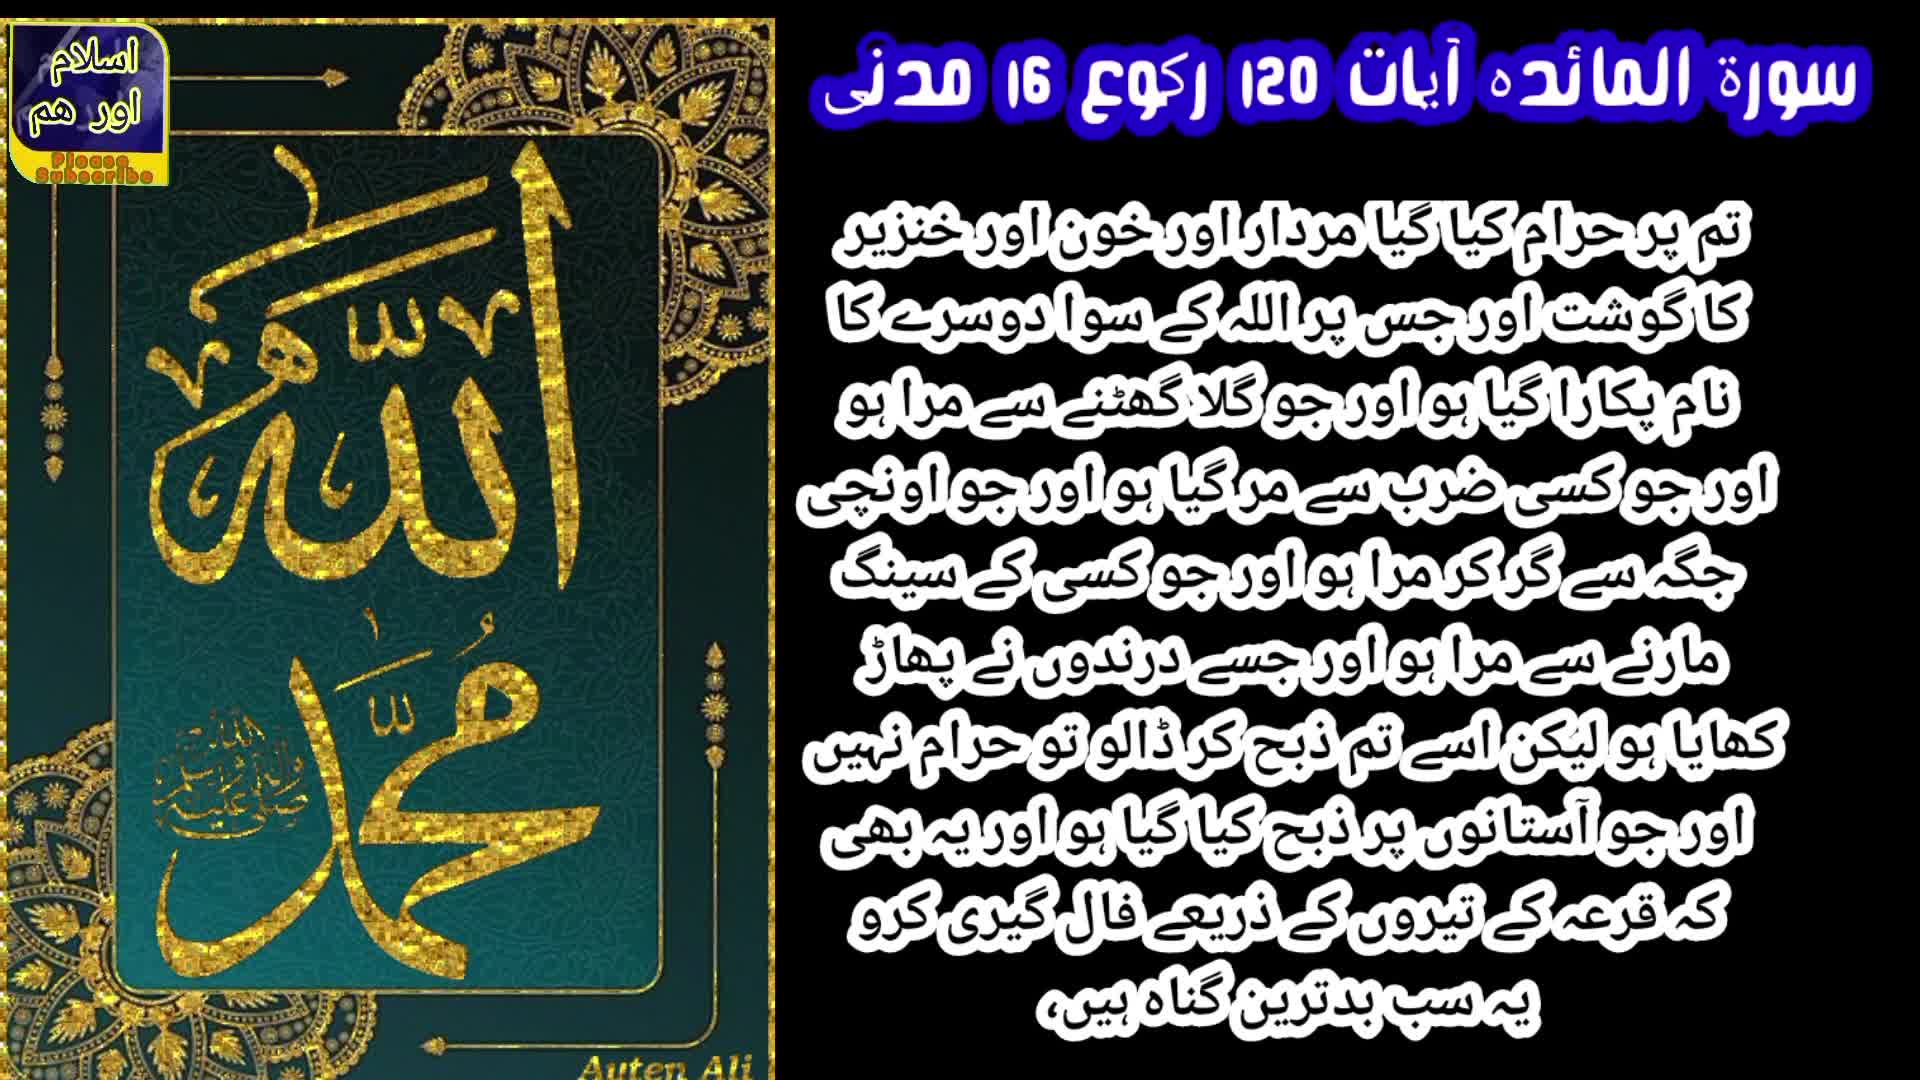 اسلام
اور ھم
Please
Subscribe
سورۃ المائدہ آیات 120 رکوع 16 مدنی
الله
محمد
صلى الله عليه وآله وسلم
Auten Ali
تم پر حرام کیا گیا مردار اور خون اور خنزیر
کا گوشت اور جس پر اللہ کے سوا دوسرے کا
نام پکارا گیا ہو اور جو گلا گھٹنے سے مرا ہو
اور جو کسی ضرب سے مر گیا ہو اور جو اونچی
جگہ سے گر کر مرا ہو اور جو کسی کے سینگ
مارنے سے مرا ہو اور جسے درندوں نے پھاڑ
کھایا ہو لیکن اسے تم ذبح کر ڈالو تو حرام نہیں
اور جو آستانوں پر ذبح کیا گیا ہو اور یہ بھی
کہ قرعہ کے تیروں کے ذریعے فال گیری کرو
یہ سب بدترین گناہ ہیں،